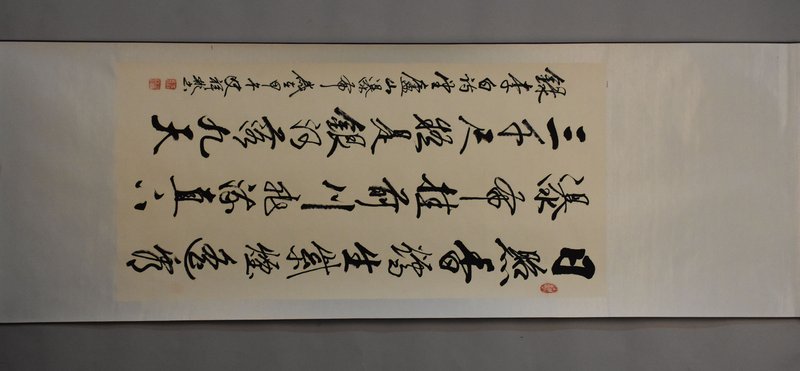 日照香爐生紫煙遥看
瀑布挂前川飛流直下
三千尺疑是銀河落九天
錄李白詩望廬山瀑布